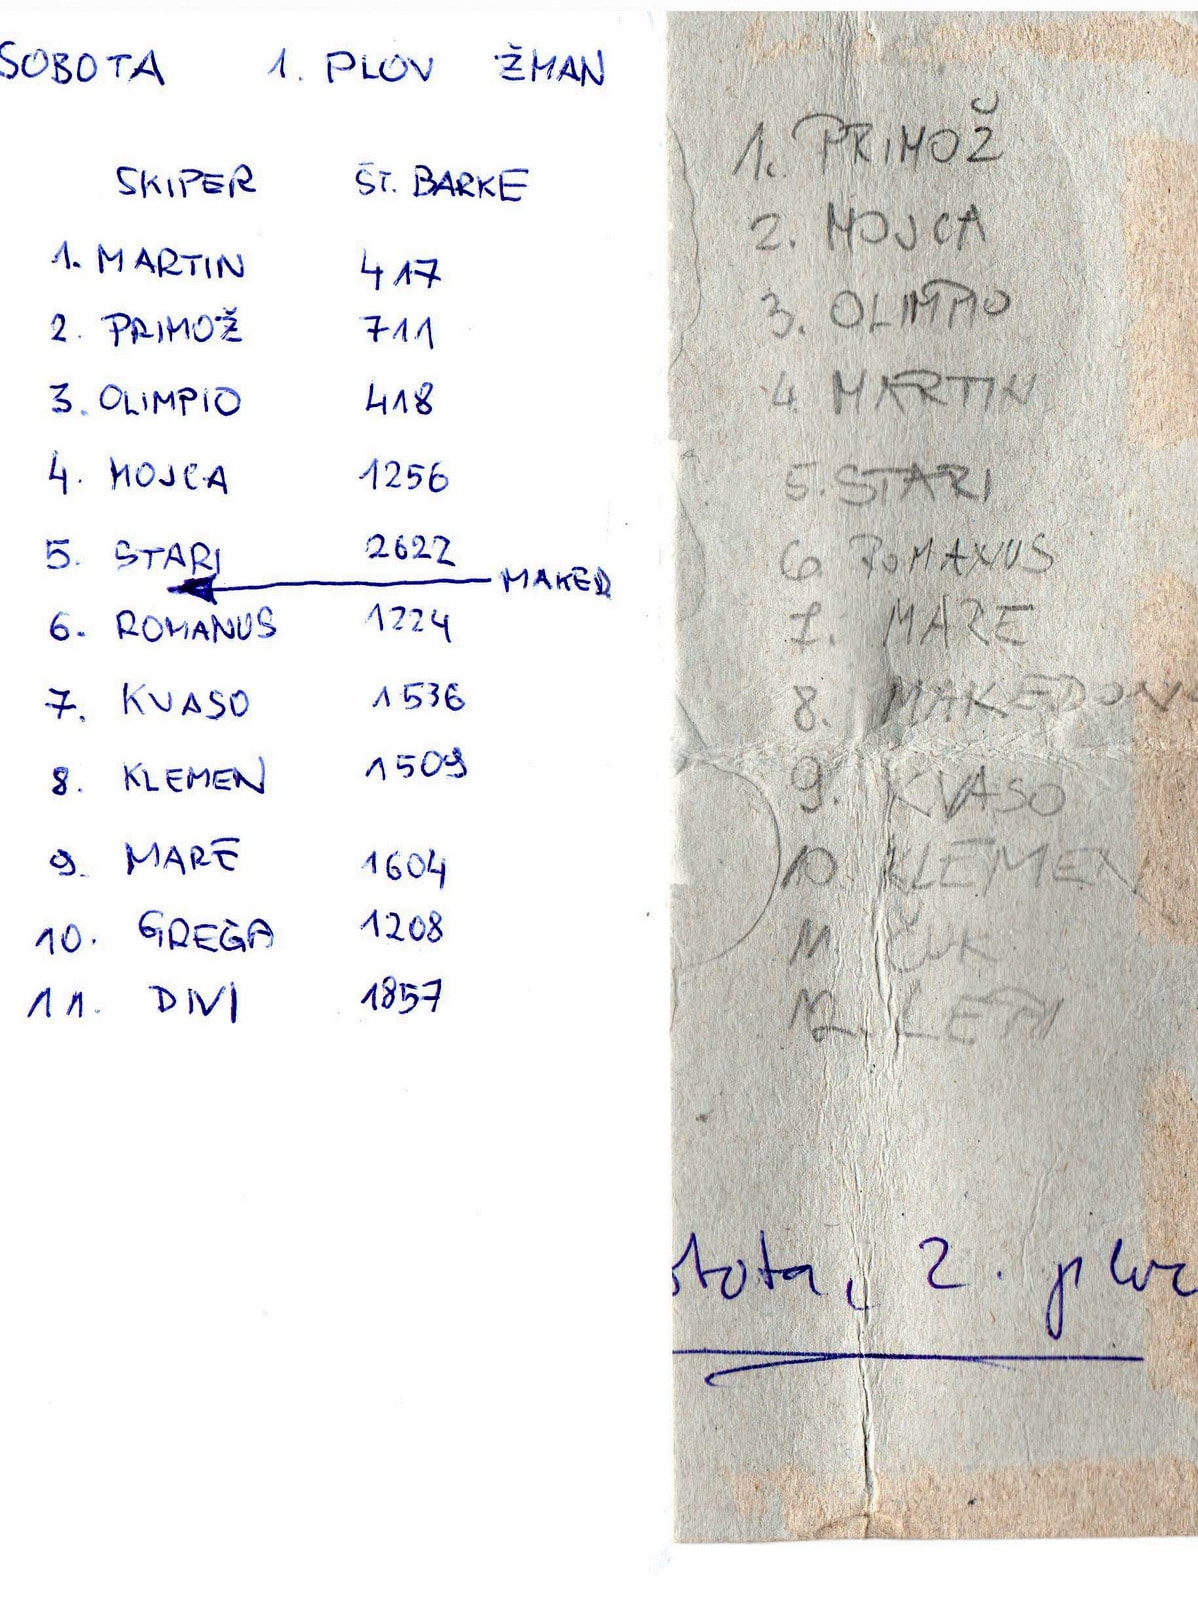 SOBOTA 1. PLOV ŽMAN
SKIPER ŠT. BARKE
1. MARTIN 417
2. PRIMOŽ 711
3. OLIMPIO 418
4. MOJCA 1256
5. STARI 2622
MAKED
6. ROMANUS 1224
7. KVASO 1536
8. KLEMEN 1509
9. MARE 1604
10. GREGA 1208
11. DIVI 1857
1. PRIMOŽ
2. MOJCA
3. OLIMPIO
4. MARTIN
5. STARI
6. ROMANUS
7. MARE
8. MAKEDON
9. KVASO
10. KLEMEN
11. ČUK
12.
2. plov